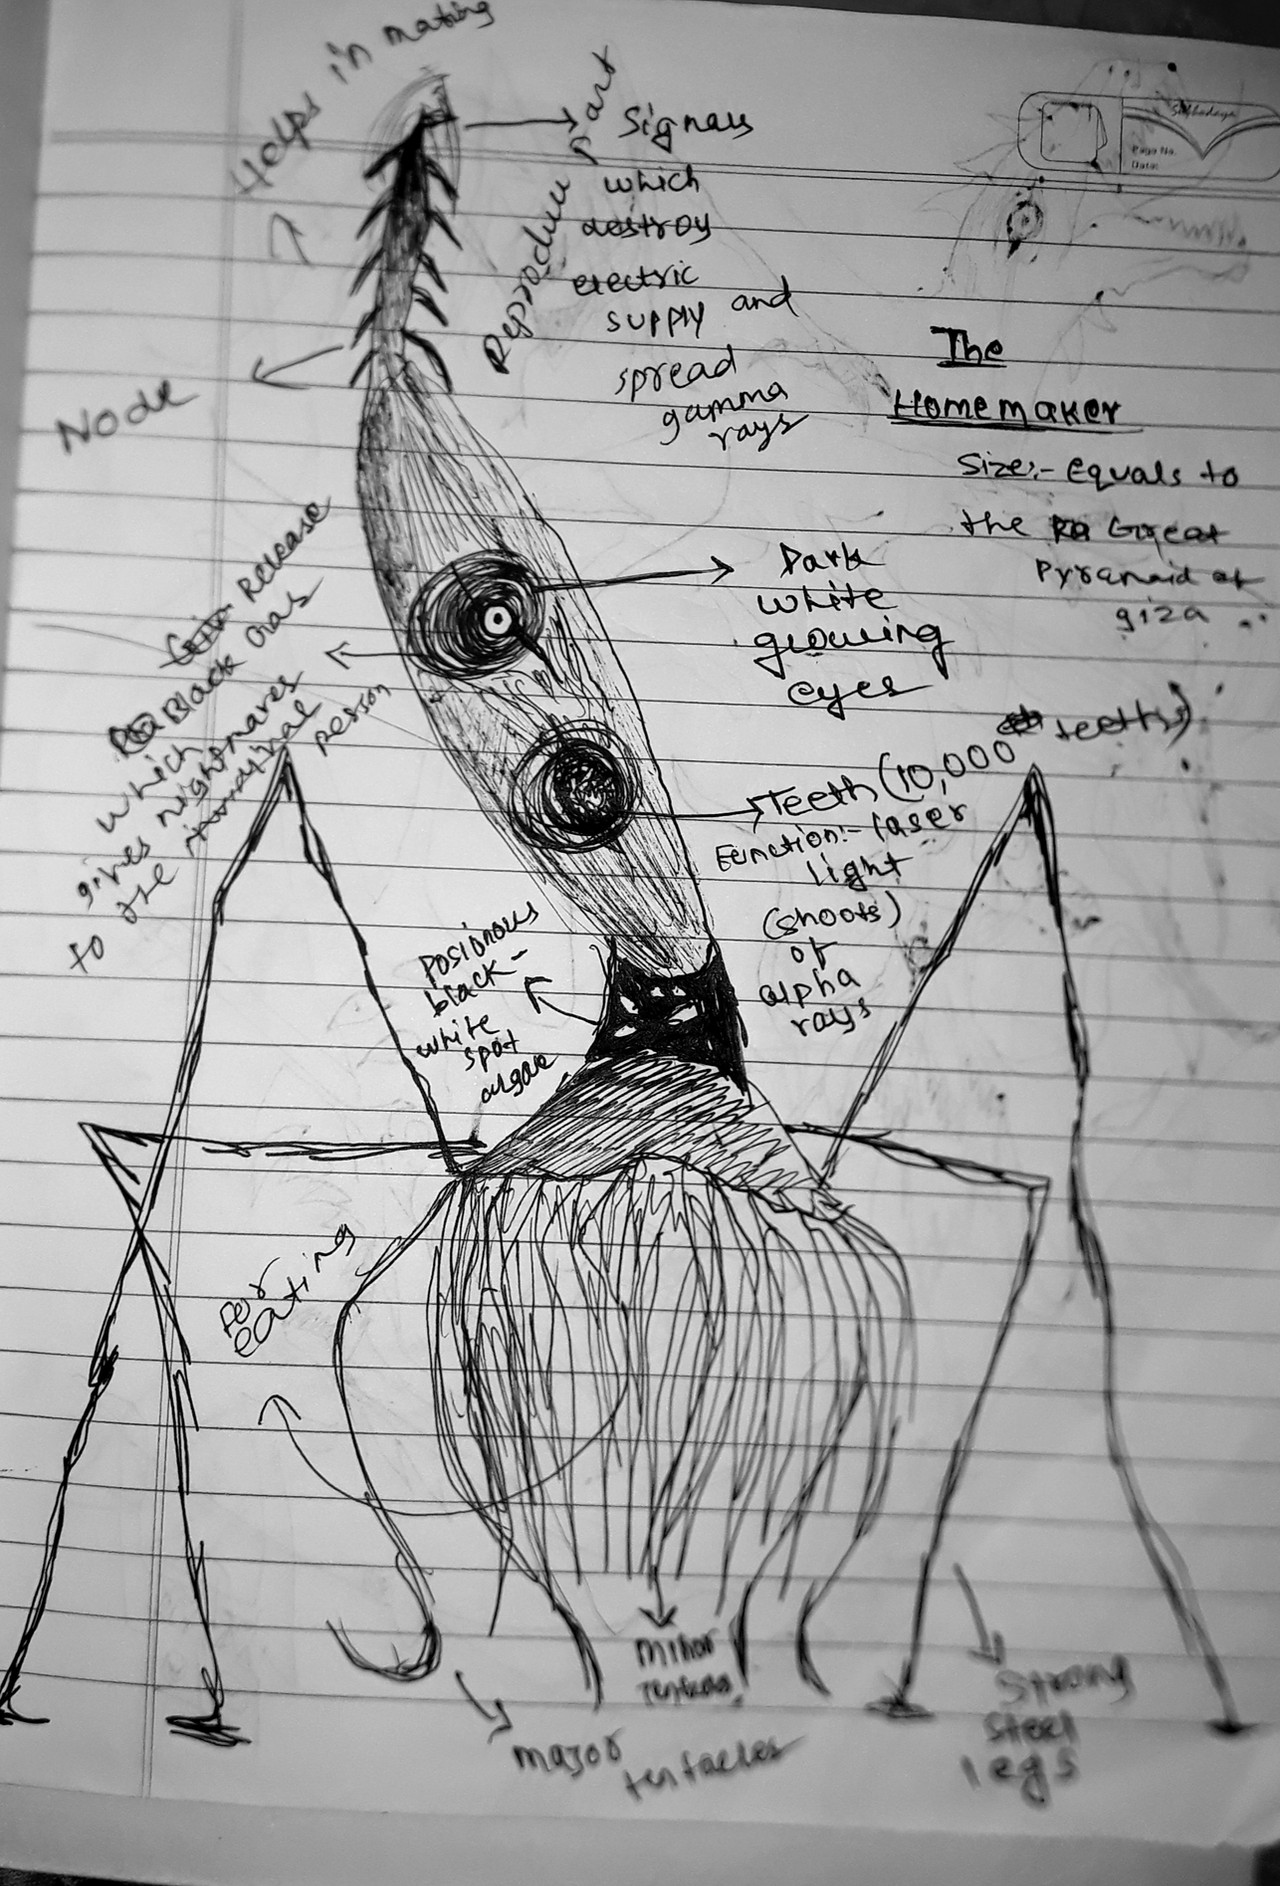 Helps in mating
Reproduce part
Signals
which
destroy
electric
supply and
spread
gamma
rays
Node
The
Homemaker
Size:- equals to
the Great
Pyramaid of
giza
Dark
white
glowing
eyes
Release
Black Gas
which
gives nightmares
to the
person
Teeth (10,000 teeths)
Function:- laser
light
(shoots)
of
alpha
rays
Posionous
black-
white
spot
algae
For
eating
minor
major
tentacles
Strong
Steel
legs
Page No.
Date: